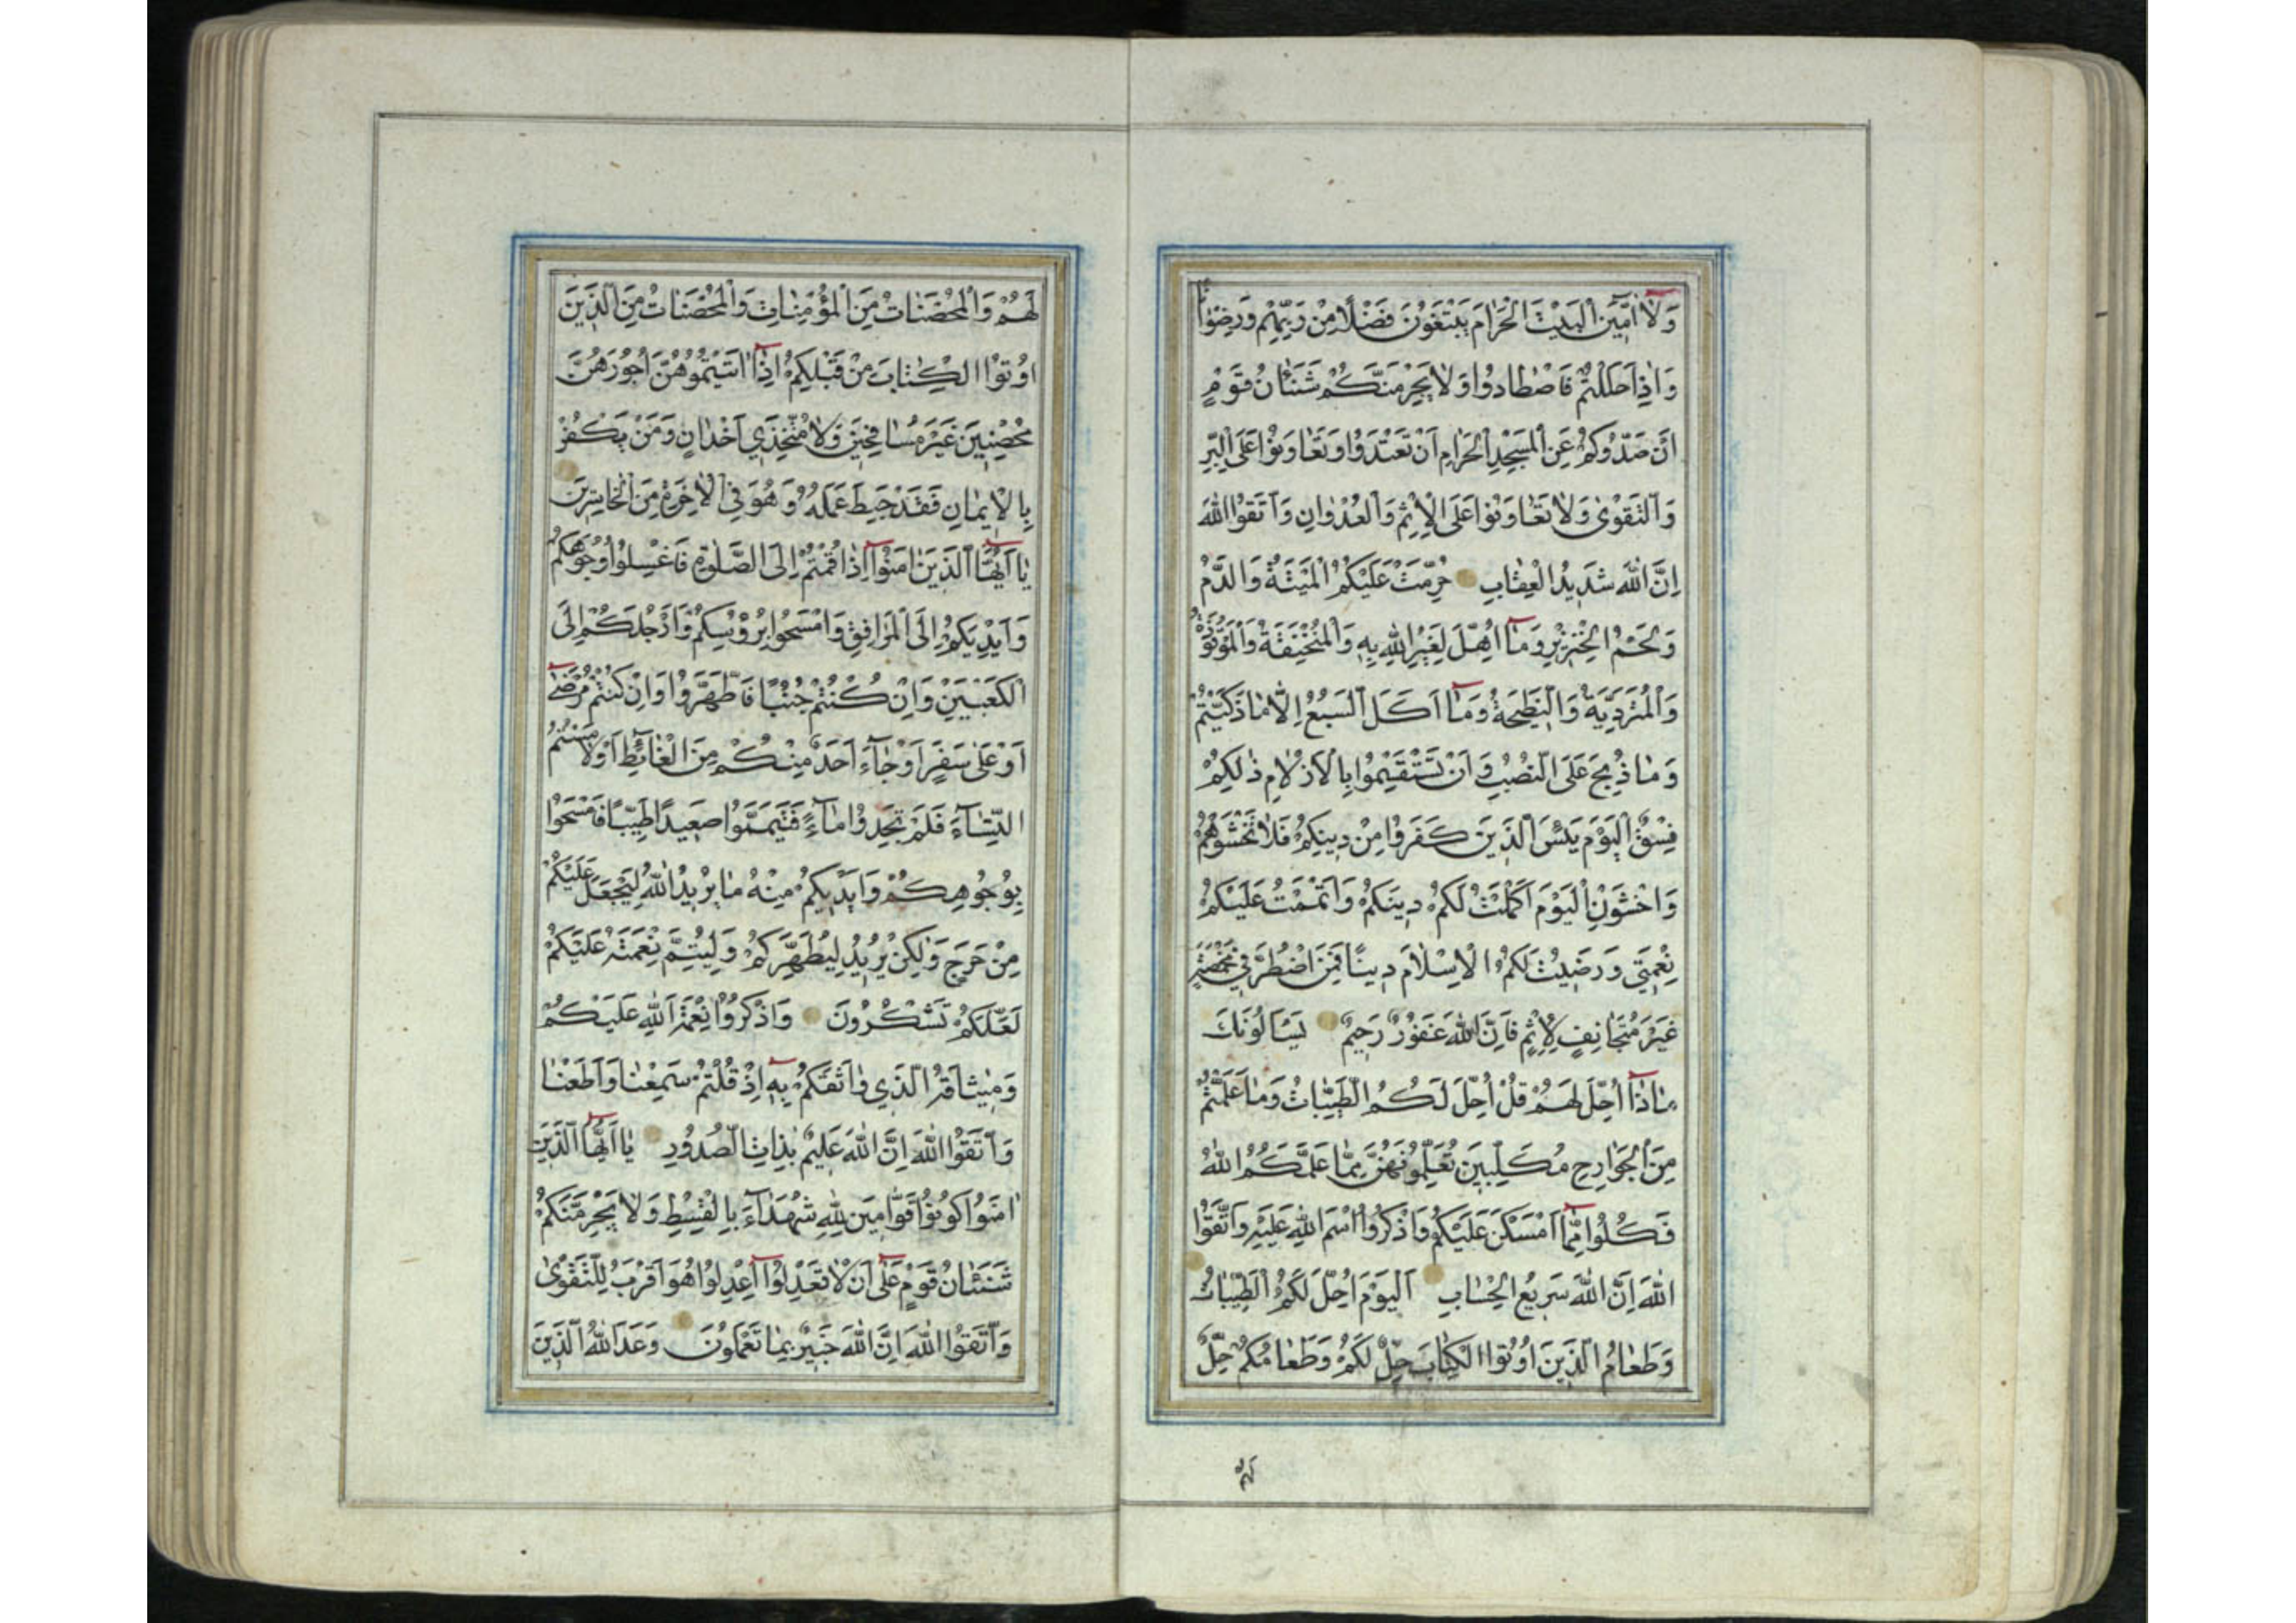 وَلَا آمِّينَ الْبَيْتَ الْحَرَامَ يَبْتَغُونَ فَضْلًا مِنْ رَبِّهِمْ وَرِضْوَانًا
وَإِذَا حَلَلْتُمْ فَاصْطَادُوا وَلَا يَجْرِمَنَّكُمْ شَنَئَانُ قَوْمٍ
أَنْ صَدُّوكُمْ عَنِ الْمَسْجِدِ الْحَرَامِ أَنْ تَعْتَدُوا وَتَعَاوَنُوا عَلَى الْبِرِّ
وَالتَّقْوَى وَلَا تَعَاوَنُوا عَلَى الْإِثْمِ وَالْعُدْوَانِ وَاتَّقُوا اللهَ
اِنَّ اللهَ شَدِيدُ الْعِقَابِ حُرِّمَتْ عَلَيْكُمُ الْمَيْتَةُ وَالدَّمُ
وَلَحْمُ الْخِنْزِيرِ وَمَا اُهِلَّ لِغَيْرِ اللهِ بِهِ وَالْمُنْخَنِقَةُ وَالْمَوْقُوذَةُ
وَالْمُتَرَدِّيَةُ وَالنَّطِيحَةُ وَمَا اَكَلَ السَّبُعُ اِلَّا مَا ذَكَّيْتُمْ
وَمَا ذُبِحَ عَلَى النُّصُبِ وَاَنْ تَسْتَقْسِمُوا بِالْاَزْلَامِ ذٰلِكُمْ
فِسْقٌ الْيَوْمَ يَئِسَ الَّذِينَ كَفَرُوا مِنْ دِينِكُمْ فَلَا تَخْشَوْهُمْ
وَاخْشَوْنِ الْيَوْمَ اَكْمَلْتُ لَكُمْ دِينَكُمْ وَاَتْمَمْتُ عَلَيْكُمْ
نِعْمَتِي وَرَضِيتُ لَكُمُ الْاِسْلَامَ دِينًا فَمَنِ اضْطُرَّ فِي مَخْمَصَةٍ
غَيْرَ مُتَجَانِفٍ لِاِثْمٍ فَاِنَّ اللهَ غَفُورٌ رَحِيمٌ يَسْاَلُونَكَ
مَاذَا اُحِلَّ لَهُمْ قُلْ اُحِلَّ لَكُمُ الطَّيِّبَاتُ وَمَا عَلَّمْتُمْ
مِنَ الْجَوَارِحِ مُكَلِّبِينَ تُعَلِّمُونَهُنَّ مِمَّا عَلَّمَكُمُ اللهُ
فَكُلُوا مِمَّا اَمْسَكْنَ عَلَيْكُمْ وَاذْكُرُوا اسْمَ اللهِ عَلَيْهِ وَاتَّقُوا
اللهَ اِنَّ اللهَ سَرِيعُ الْحِسَابِ اَلْيَوْمَ اُحِلَّ لَكُمُ الطَّيِّبَاتُ
وَطَعَامُ الَّذِينَ اُوتُوا الْكِتَابَ حِلٌّ لَكُمْ وَطَعَامُكُمْ حِلٌّ
لهم
لَهُمْ وَالْمُحْصَنَاتُ مِنَ الْمُؤْمِنَاتِ وَالْمُحْصَنَاتُ مِنَ الَّذِينَ
اُوتُوا الْكِتَابَ مِنْ قَبْلِكُمْ اِذَا اٰتَيْتُمُوهُنَّ اُجُورَهُنَّ
مُحْصِنِينَ غَيْرَ مُسَافِحِينَ وَلَا مُتَّخِذِي اَخْدَانٍ وَمَنْ يَكْفُرْ
بِالْاِيمَانِ فَقَدْ حَبِطَ عَمَلُهُ وَهُوَ فِي الْاٰخِرَةِ مِنَ الْخَاسِرِينَ
يَا اَيُّهَا الَّذِينَ اٰمَنُوا اِذَا قُمْتُمْ اِلَى الصَّلٰوةِ فَاغْسِلُوا وُجُوهَكُمْ
وَاَيْدِيَكُمْ اِلَى الْمَرَافِقِ وَامْسَحُوا بِرُؤُسِكُمْ وَاَرْجُلَكُمْ اِلَى
الْكَعْبَيْنِ وَاِنْ كُنْتُمْ جُنُبًا فَاطَّهَّرُوا وَاِنْ كُنْتُمْ مَرْضٰى
اَوْ عَلٰى سَفَرٍ اَوْ جَاءَ اَحَدٌ مِنْكُمْ مِنَ الْغَائِطِ اَوْ لَامَسْتُمُ
النِّسَاءَ فَلَمْ تَجِدُوا مَاءً فَتَيَمَّمُوا صَعِيدًا طَيِّبًا فَامْسَحُوا
بِوُجُوهِكُمْ وَاَيْدِيكُمْ مِنْهُ مَا يُرِيدُ اللهُ لِيَجْعَلَ عَلَيْكُمْ
مِنْ حَرَجٍ وَلٰكِنْ يُرِيدُ لِيُطَهِّرَكُمْ وَلِيُتِمَّ نِعْمَتَهُ عَلَيْكُمْ
لَعَلَّكُمْ تَشْكُرُونَ وَاذْكُرُوا نِعْمَةَ اللهِ عَلَيْكُمْ
وَمِيثَاقَهُ الَّذِي وَاثَقَكُمْ بِهِ اِذْ قُلْتُمْ سَمِعْنَا وَاَطَعْنَا
وَاتَّقُوا اللهَ اِنَّ اللهَ عَلِيمٌ بِذَاتِ الصُّدُورِ يَا اَيُّهَا الَّذِينَ
اٰمَنُوا كُونُوا قَوَّامِينَ لِلّٰهِ شُهَدَاءَ بِالْقِسْطِ وَلَا يَجْرِمَنَّكُمْ
شَنَئَانُ قَوْمٍ عَلٰى اَنْ لَا تَعْدِلُوا اِعْدِلُوا هُوَ اَقْرَبُ لِلتَّقْوٰى
وَاتَّقُوا اللهَ اِنَّ اللهَ خَبِيرٌ بِمَا تَعْمَلُونَ وَعَدَ اللهُ الَّذِينَ